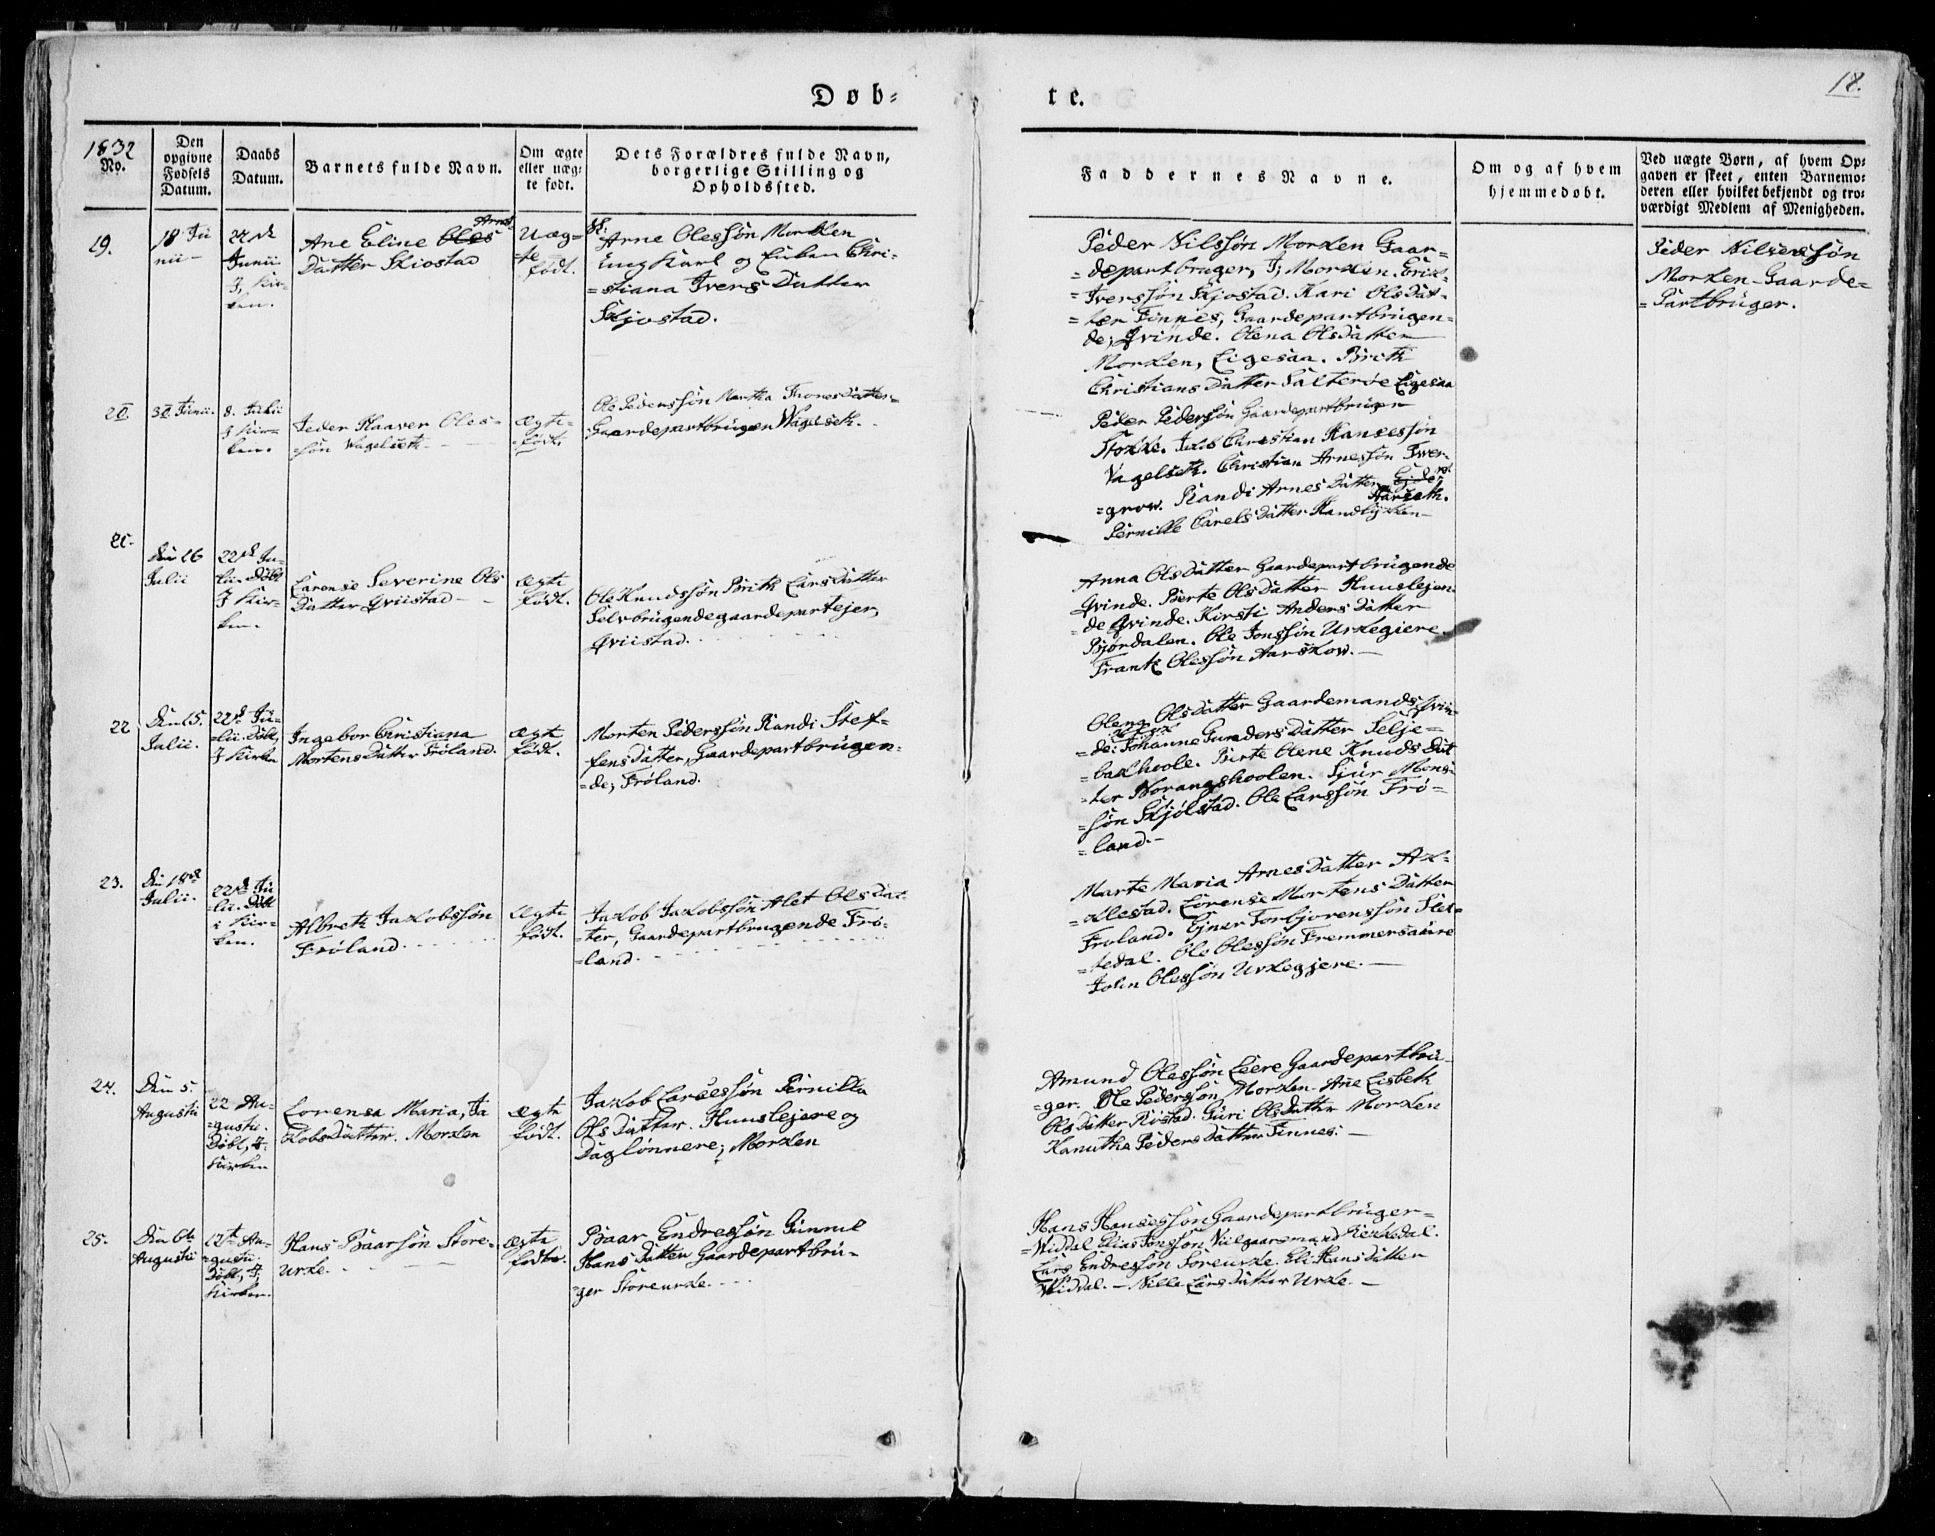 18.
Døb-
te.
1832
No.
Den
opgivne
Fødsels
Datum.
Daabs
Datum.
Barnets fulde Navn.
Om ægte
eller uæg-
te født.
Dets Forældres fulde Navn,
borgerlige Stilling og
Opholdssted.
Faddernes Navne.
Om og af hvem
hjemmedøbt.
Ved uægte Børn, af hvem Op-
gaven er skeet, enten Barnemo-
deren eller hvilket bekjendt og tro-
værdigt Medlem af Menigheden.
19.
18 Ju
nii
22de
Junii
I, Kir-
ken.
Arnes
Ane Eline Oles
Datter Skiostad
Uæg-
-te
født.
Arne Olessøn Morken
Ungkarl og Enken Chri-
=stiana Ivers Datter
Skjostad.
Peder Nilssøn Morken Gaar-
=departbruger, I; Morken. Erik
=Iverssøn Skjostad. Kari Ols Dat-
=ter Finnes, Gaardepartbrugen=
de; Qvinde. Olena Olsdatter
Morken, Ligesaa. Brith
Christians Datter Sæterøe Ligesaa
Peder Nilsessøn
Morken Gaarde=
=Partbruger.
20.
30 Junii.
8. Julii
I Kir-
ken.
Peder Klaaver Oles-
søn Vagelseth
Ægte-
-født.
Ole Pederssøn Martha Thores Datter
Gaardepartbruger Vagelseth.
Peder Pederssøn Gaardepartbruger
Stokke. Christian Hansessøn
Vagelseth. Christian Arnessøn Tver-
=grov. Randi Arnes Datter
Aarseth.
Pernille Carels Datter
21.
Den 16
Julii
22de Ju-
lii. Døbt
I Kir-
ken.
Larense Severine Ols
Datter Qviistad
ægte
født.
Ole Knudssøn Brith Lars Datter
Selvbrugendegaardepartejer,
Qviistad.
Anna Ols Datter Gaardepartbrugende
Qvinde. Berte Ols Datter Huuslejen-
de Qvinde. Kirsti Anders Datter
Bjørdalen. Ole Jonssøn Urkegjere.
Frantz Olessøn Aarskow.
22
Den 15.
Julii.
22de Ju-
=lii. Døbt,
I Kirken
Ingebor Christiana
Mortens Datter Frøland.
ægte
født.
Morten Pederssøn Randi Stef-
fens Datter, Gaardepartbrugen-
=de; Frøland.
Olena Ols Datter Gaardemands Qvin
=de; Johanne Gunders Datter Selje=
=bakhoole. Berte Olene Knuds Dat
=ter Norangshoolen. Sjur Mons
=søn Skjølstad. Ole Larssøn Frø=
=land.
23.
Den 18de
Julii.
22de Ju
=lii. Døbt
i Kir-
ken.
Albreth Jakobssøn
Frøland.
ægte
født.
Jakob Jakobssøn Alet Ols Dat
=ter, Gaardepartbrugende Frø-
=land.
Marte Maria Arnes Datter Ak-
=klestad. Lorense Mortens Datter
Frøland. Ejner Torbjorenssøn Slet-
=tedal. Ole Olessøn Fremmersaure
John Olessøn Urkegjere.
24.
Den 5
Augustii
22 Au-
=gustii.
Døbt, I.
Kirken
Lorensa Maria, Ja
kobs Datter. Morken
ægte
født.
Jakob Larsessøn Pernilla
Ols Datter. Huuslejere og
Daglønnere; Morken
Amund Olessøn Leere Gaardepartbru-
=ger. Ole Pederssøn Morken. Ane Lisbeth
Ols Datter Riostad. Guri Ols Datter Morken
Kanutha Peders Datter Finnes.
25.
Den 6te
Augustii
22de Au-
=gustii
Døbt, I,
Kirken.
Hans Baarsøn Store-
Urke.
ægte
fødte.
Baar Endressøn Gunnil
Hans Datter Gaardepartbru-
=ger Storeurke.
Hans Hansessøn Gaardepartbruger=
=Viddal Elias Jonssøn Rekkedal.
Lars Endressøn Storeurke. Eli Hans Datter
Viddal. Nille Lars Datter Urke.